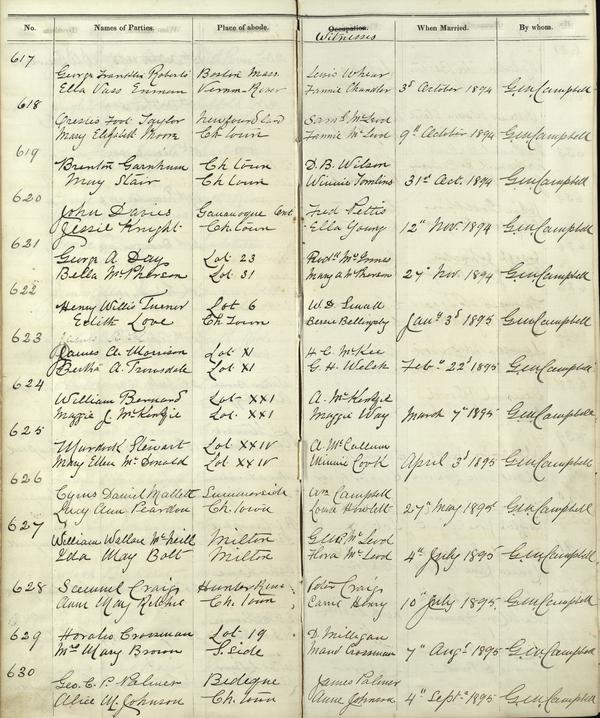 No. Names of Parties. Place of abode. Occupation. Witnesses When Married. By whom.
617
George Franklin Roberts Boston Mass. Lewis Whear
Ella Vass Enman Vernon River Fannie Chandler 3d October 1894 G.W. Campbell
618
Orestes Foot Taylor Newfoundland Saml McLeod
Mary Elizabeth Moore Ch. town Fannie McLeod 9th October 1894 G.W. Campbell
619
Brenton Garnhum Ch town D. B. Wilson
May Stair Ch town Winnie Tomlins 31st Oct. 1894 G.W. Campbell
620
John Davies Gananoque Ont Fred Pettis
Jessie Knight Ch. town Ella Young 12th Nov. 1894 G.W. Campbell
621
George A Day Lot 23
Bella McPherson Lot 31 Mary A McPherson 27th Nov. 1894 G.W. Campbell
622
Henry Willis Turner Lot 6 W. D. Small
Edith Love Ch Town Jany 3d 1895 G.W. Campbell
623
James A. Morrison Lot XI H. C. McKee
Bertha A. Truesdale Lot XI G. H. Welsh Feby 22d 1895 G.W. Campbell
624
William Bernard Lot XXI A. McKenzie
Maggie J. McKenzie Lot XXI Maggie Way March 7th 1895 G.W. Campbell
625
Murdock Stewart Lot XXIV A. McCallum
Mary Ellen McDonald Lot XXIV Minnie Cook April 3d 1895 G.W. Campbell
626
Cyrus Daniel Mallett Summerside Wm Campbell
Lucy Ann Peardon Ch. town Louise Howlett 27th May 1895 G.W. Campbell
627
William Wallace McNeill Milton McLeod
Ida May Bolt Milton Flora McLeod 4th July 1895 G.W. Campbell
628 Samuel Craig Hunter River Peter Craig
Anne May Ritchie Ch. Town Henry 10th July 1895 G.W. Campbell
629 Horatio Crossman Lot 19 D. Milligan
Mrs Mary Brown S. Side Maud Crossman 7th Augt 1895 G.W. Campbell
630
Geo. C. P. Palmer Bedeque James Palmer
Alice M. Johnson Ch. town Anne Johnson 4th Septr 1895 G.W. Campbell